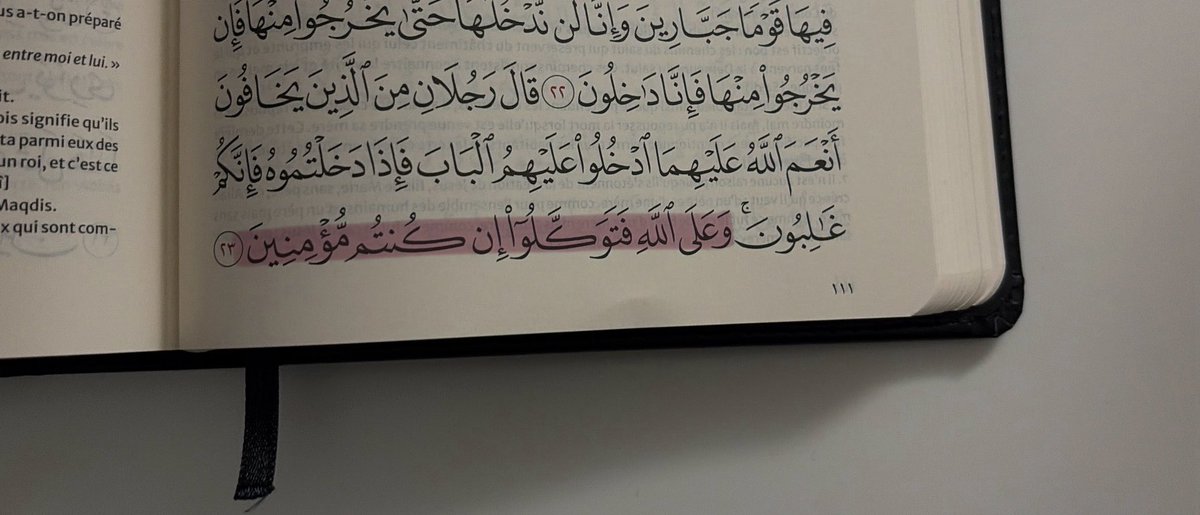 فِيهَا قَوْمًا جَبَّارِينَ وَإِنَّا لَن نَّدْخُلَهَا حَتَّىٰ يَخْرُجُوا۟ مِنْهَا فَإِن
يَخْرُجُوا۟ مِنْهَا فَإِنَّا دَٰخِلُونَ ٢٢ قَالَ رَجُلَانِ مِنَ ٱلَّذِينَ يَخَافُونَ
أَنْعَمَ ٱللَّهُ عَلَيْهِمَا ٱدْخُلُوا۟ عَلَيْهِمُ ٱلْبَابَ فَإِذَا دَخَلْتُمُوهُ فَإِنَّكُمْ
غَٰلِبُونَ ۚ وَعَلَى ٱللَّهِ فَتَوَكَّلُوٓا۟ إِن كُنتُم مُّؤْمِنِينَ ٢٣
١١١
us a-t-on préparé
entre moi et lui. »
it.
ois signifie qu'ils
ta parmi eux des
un roi, et c'est ce
î]
Maqdis.
x qui sont com-